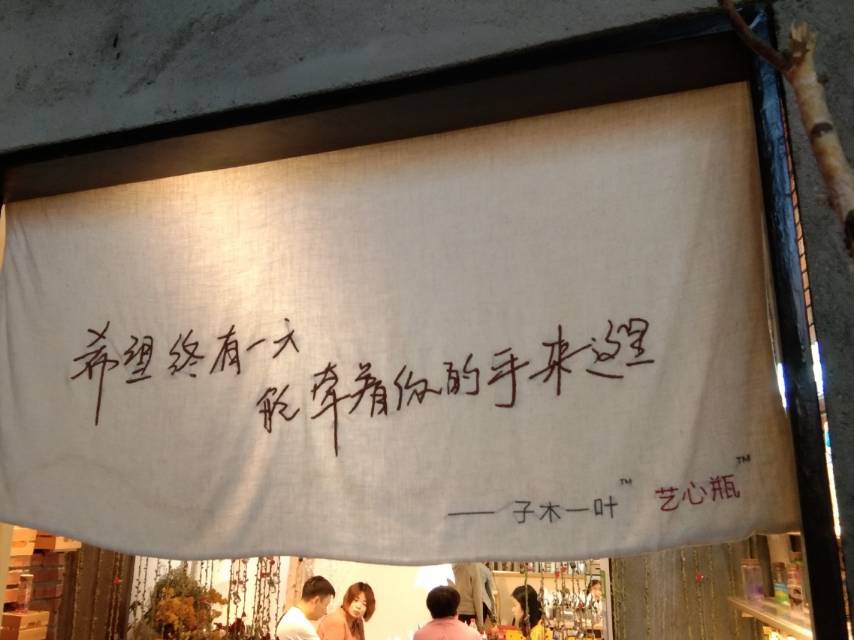 希望终有一天
能牵着你的手来这里
—— 子木一叶™ 艺心瓶™